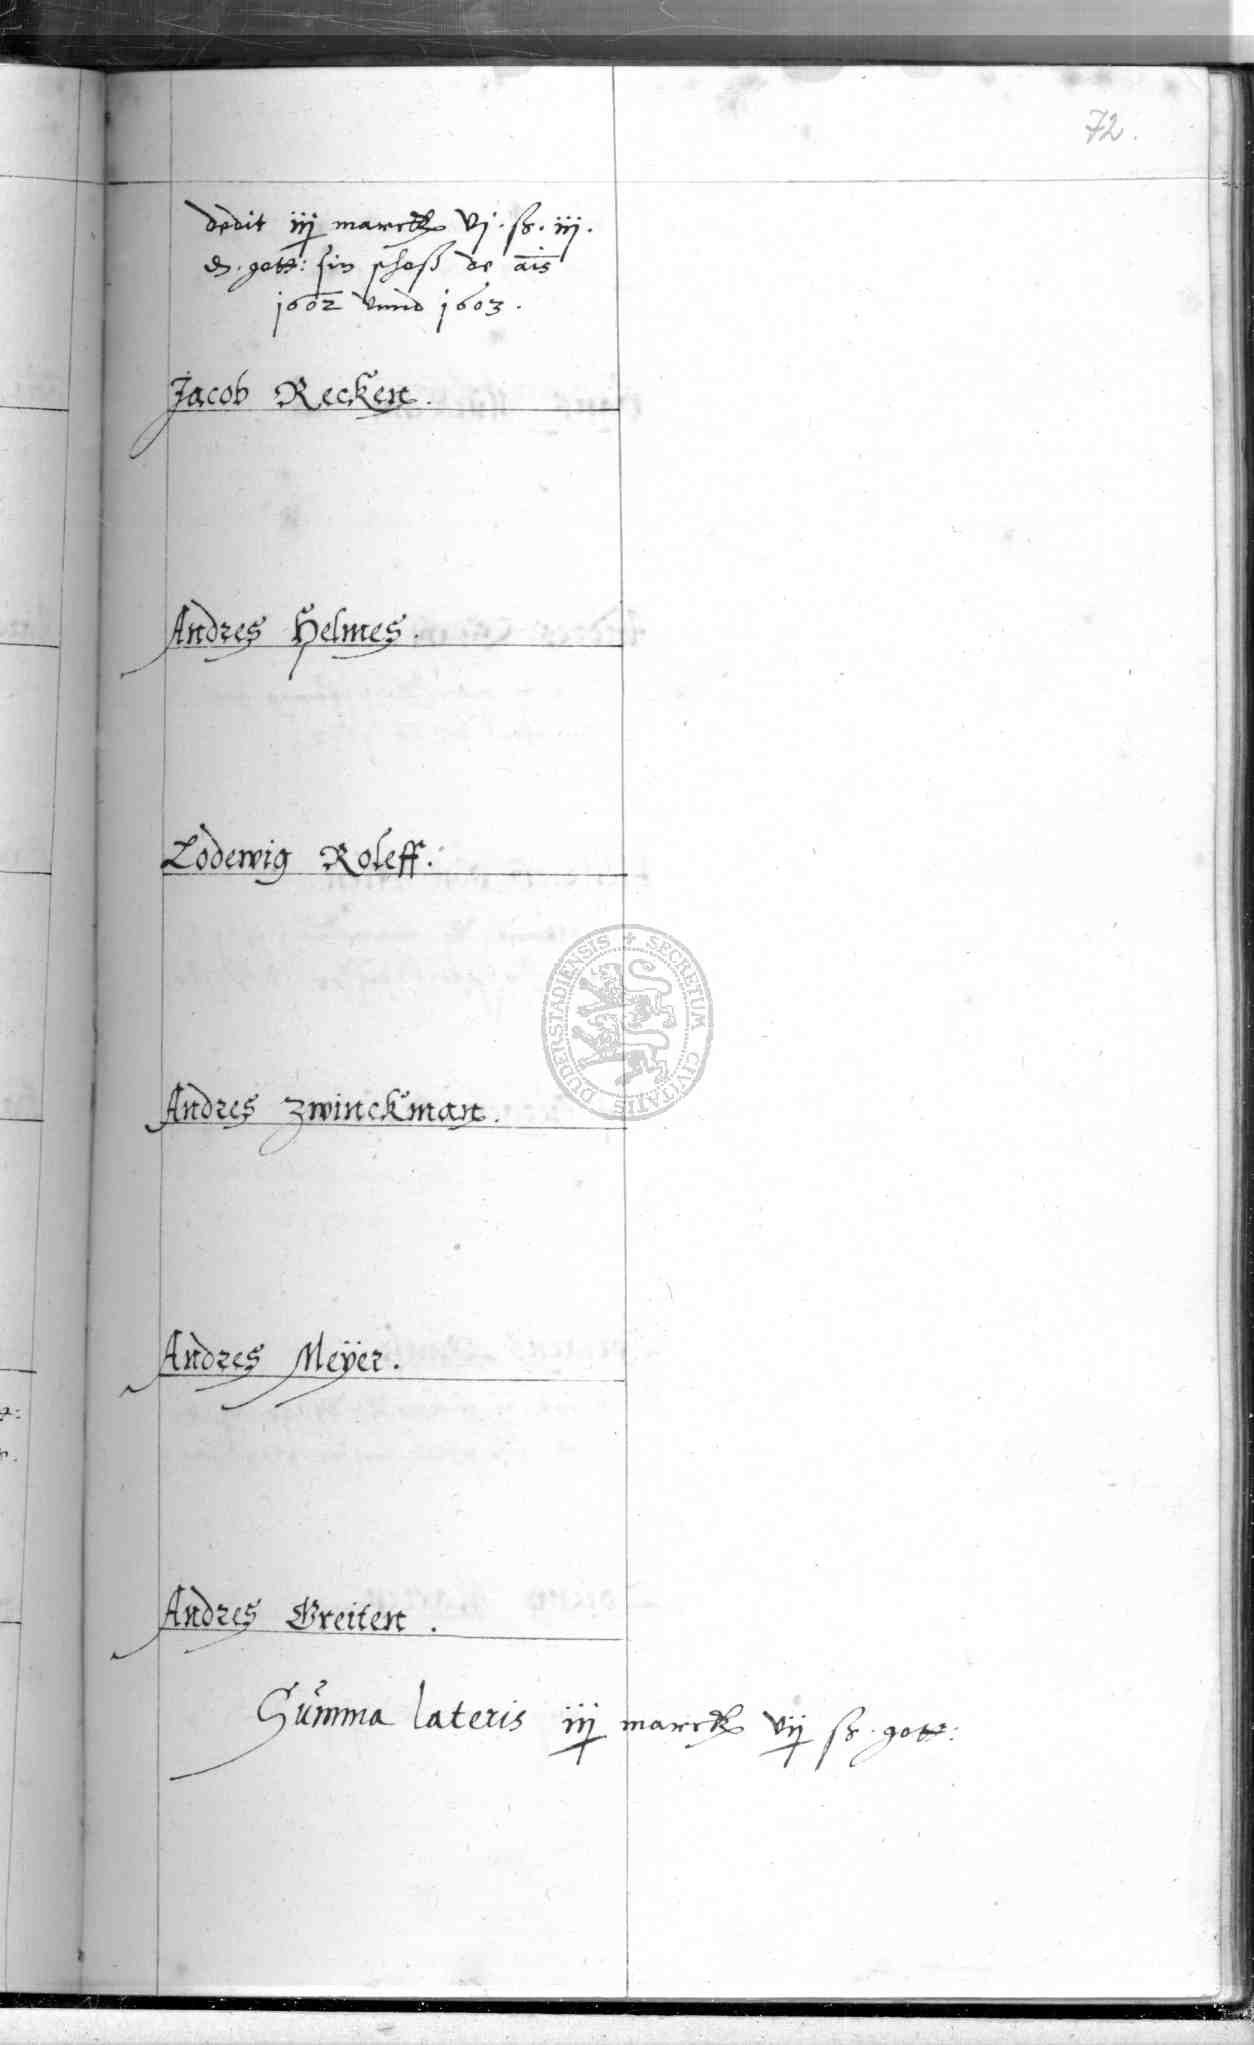 72.
dedit iij marck vj. ß. iij.
d. gott: sin schoß de ais
1602 vnnd 1603.
Jacob Recken.
Andres Helmes.
Lodewig Roleff.
DUDERSTADIENSIS + SECRETUM CIVITATIS
Andres Zwinckman.
Andres Meÿer.
Andres Greiten.
Summa lateris iij marck vij ß. gott: